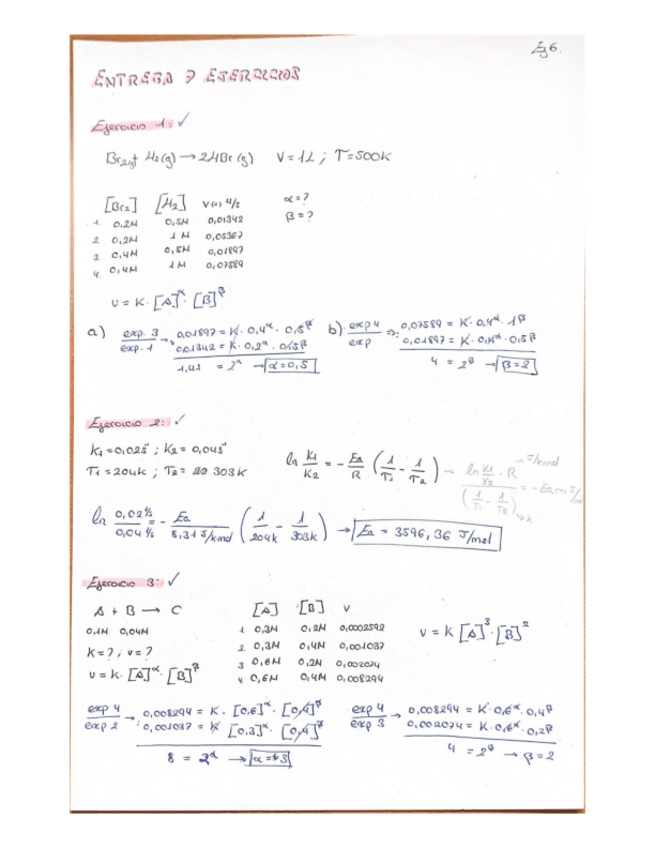 Ej 6.
ENTREGA 7 EJERCICIOS
Ejercicio 1: ✓
Br₂(g) + H₂(g) → 2HBr(g) V = 1L ; T = 500K
[Br₂] [H₂] V(0) M/s α = ?
1. 0,2M 0,5M 0,01342 β = ?
2. 0,2M 1M 0,05367
3. 0,4M 0,5M 0,01897
4. 0,4M 1M 0,07589
v = K · [A]^α · [B]^β
a) exp. 3 / exp. 1 → 0,01897 = K · 0,4^α · 0,5^β
0,01342 = K · 0,2^α · 0,5^β
1,41 = 2^α → α = 0,5
b) exp 4 / exp ⇒ 0,07589 = K · 0,4^α · 1^β
0,01897 = K · 0,4^α · 0,5^β
4 = 2^β → β = 2
Ejercicio 2: ✓
K₁ = 0,02s⁻¹ ; K₂ = 0,04s⁻¹
T₁ = 204K ; T₂ = 303K
ln K₁/K₂ = - Ea/R (1/T₁ - 1/T₂) → ln K₁/K₂ · R / (1/T₁ - 1/T₂) = - Ea
ln 0,02 1/s / 0,04 1/s = - Ea / 8,31 J/kmol (1/204K - 1/303K) → Ea = 3596,36 J/mol
Ejercicio 3: ✓
A + B → C [A] [B] V
0,1M 0,04M 1. 0,3M 0,2M 0,0002592
K = ? ; v = ? 2. 0,3M 0,4M 0,001037
v = k · [A]^α · [B]^β 3 0,6M 0,2M 0,002074
4 0,6M 0,4M 0,008294
v = k [A]³ · [B]²
exp 4 / exp 2 → 0,008294 = K · [0,6]^α · [0,4]^β
0,001037 = K [0,3]^α · [0,4]^β
8 = 2^α → α = 3
exp 4 / exp 3 → 0,008294 = K · 0,6^α · 0,4^β
0,002074 = K · 0,6^α · 0,2^β
4 = 2^β → β = 2